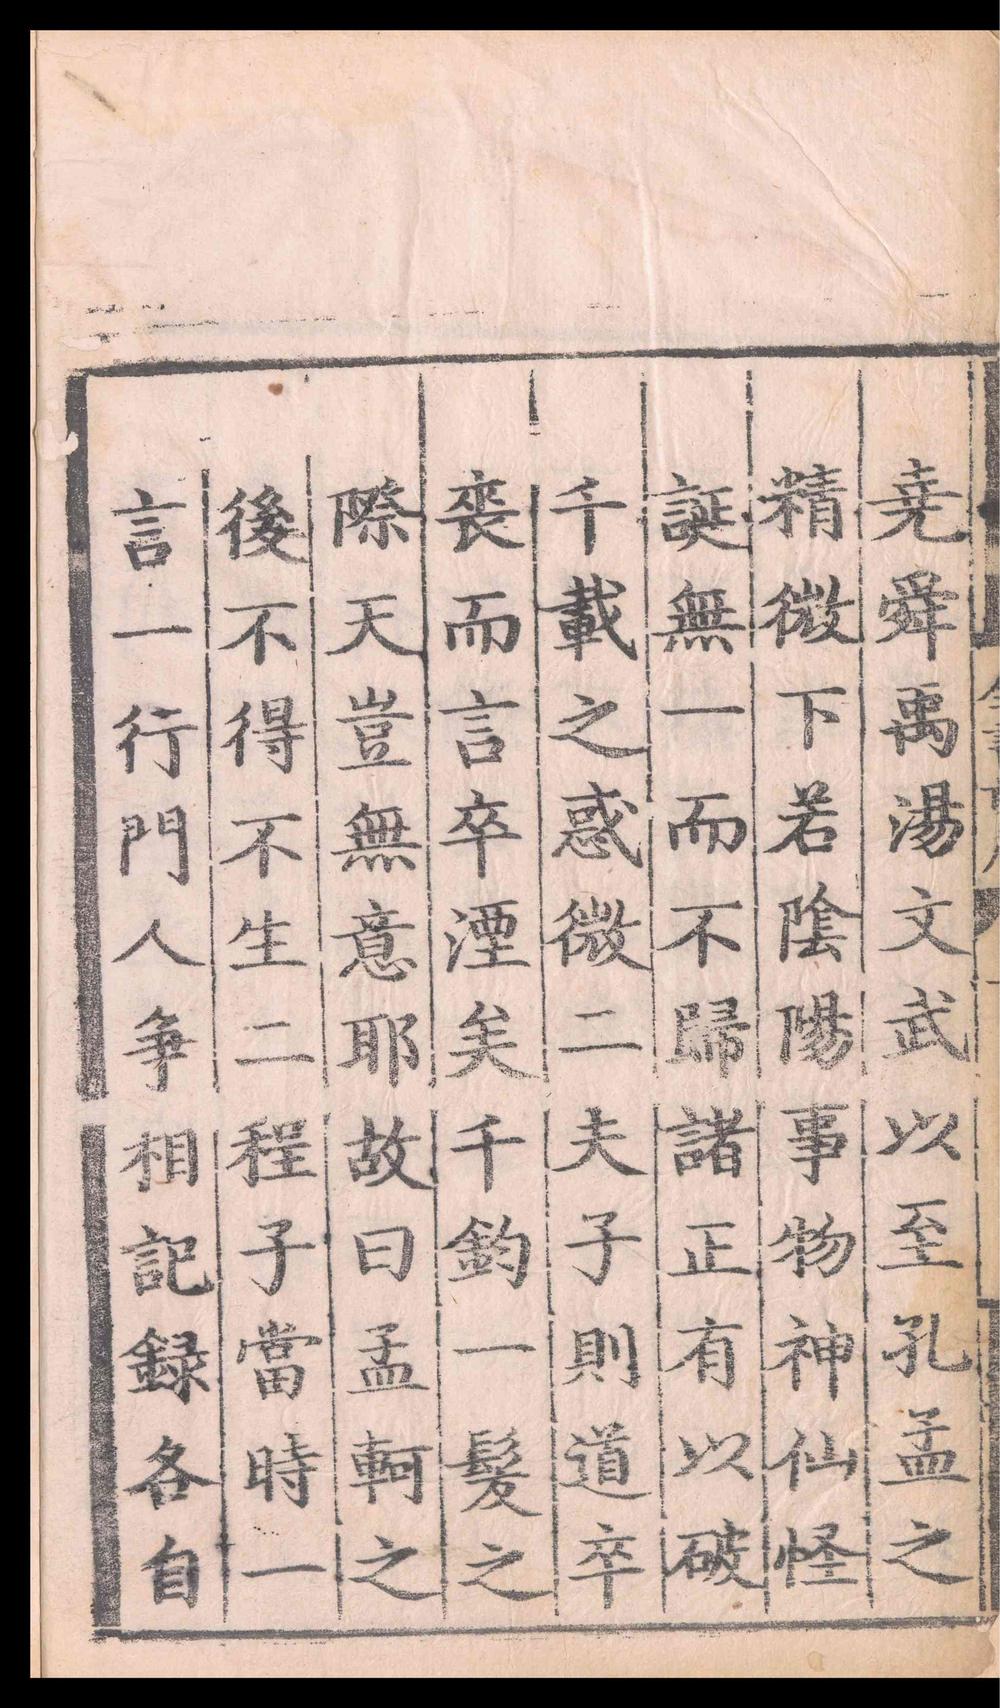 堯舜禹湯文武以至孔孟之
精微下若陰陽事物神仙怪
誕無一而不歸諸正有以破
千載之惑微二夫子則道卒
喪而言卒湮矣千鈞一髮之
際天豈無意耶故曰孟軻之
後不得不生二程子當時一
言一行門人爭相記録各自